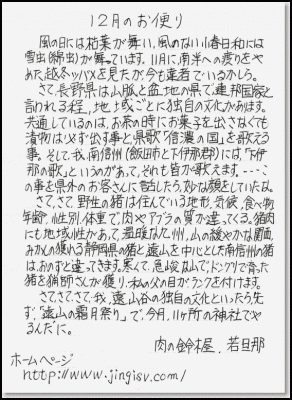 12月のお便り
風の日には枯葉が舞い、風のない小春日和には
雪虫(綿虫)が舞っています。11月に南半への渡りをや
めた越冬ツバメを見たが今も達者でいるかしら。
さて、長野県は山脈と盆地の県で連邦国家と
言われる程、地域ごとに独自の文化があります。
共通しているのは、お茶の時にお菓子を出さなくても
漬物は必ず出す事と県歌「信濃の国」を歌える
事。そして、我、南信州(飯田市と下伊那郡)には、「下伊
那の歌」というのがあって、それも皆が歌えます。---こ
の事を県外のお客さんに話したら、妙な顔をしていたな。
さて、さて、野生の猪は住んでいる地形、気候、食べ物
年齢、性別、体重で、肉やアブラの質が違ってくる。猪肉
にも地域性があって、温暖な九州、山の緩やかな関西、
みかんの獲れる静岡県の猪と遠山を中心とした南信州の猪
は、おのずと違ってきます。寒くて、急峻な山で、ドングリで育った
猪を猟師さんが獲り、私の父の目がランクを付けます。
さて、さて、さて、我、遠山谷の独自の文化といったら先
ず、「遠山の霜月祭り」で、今月、11ヶ所の神社でや
るんだに。
肉の鈴木屋 若旦那
ホームページ
http://www.jingisu.com/